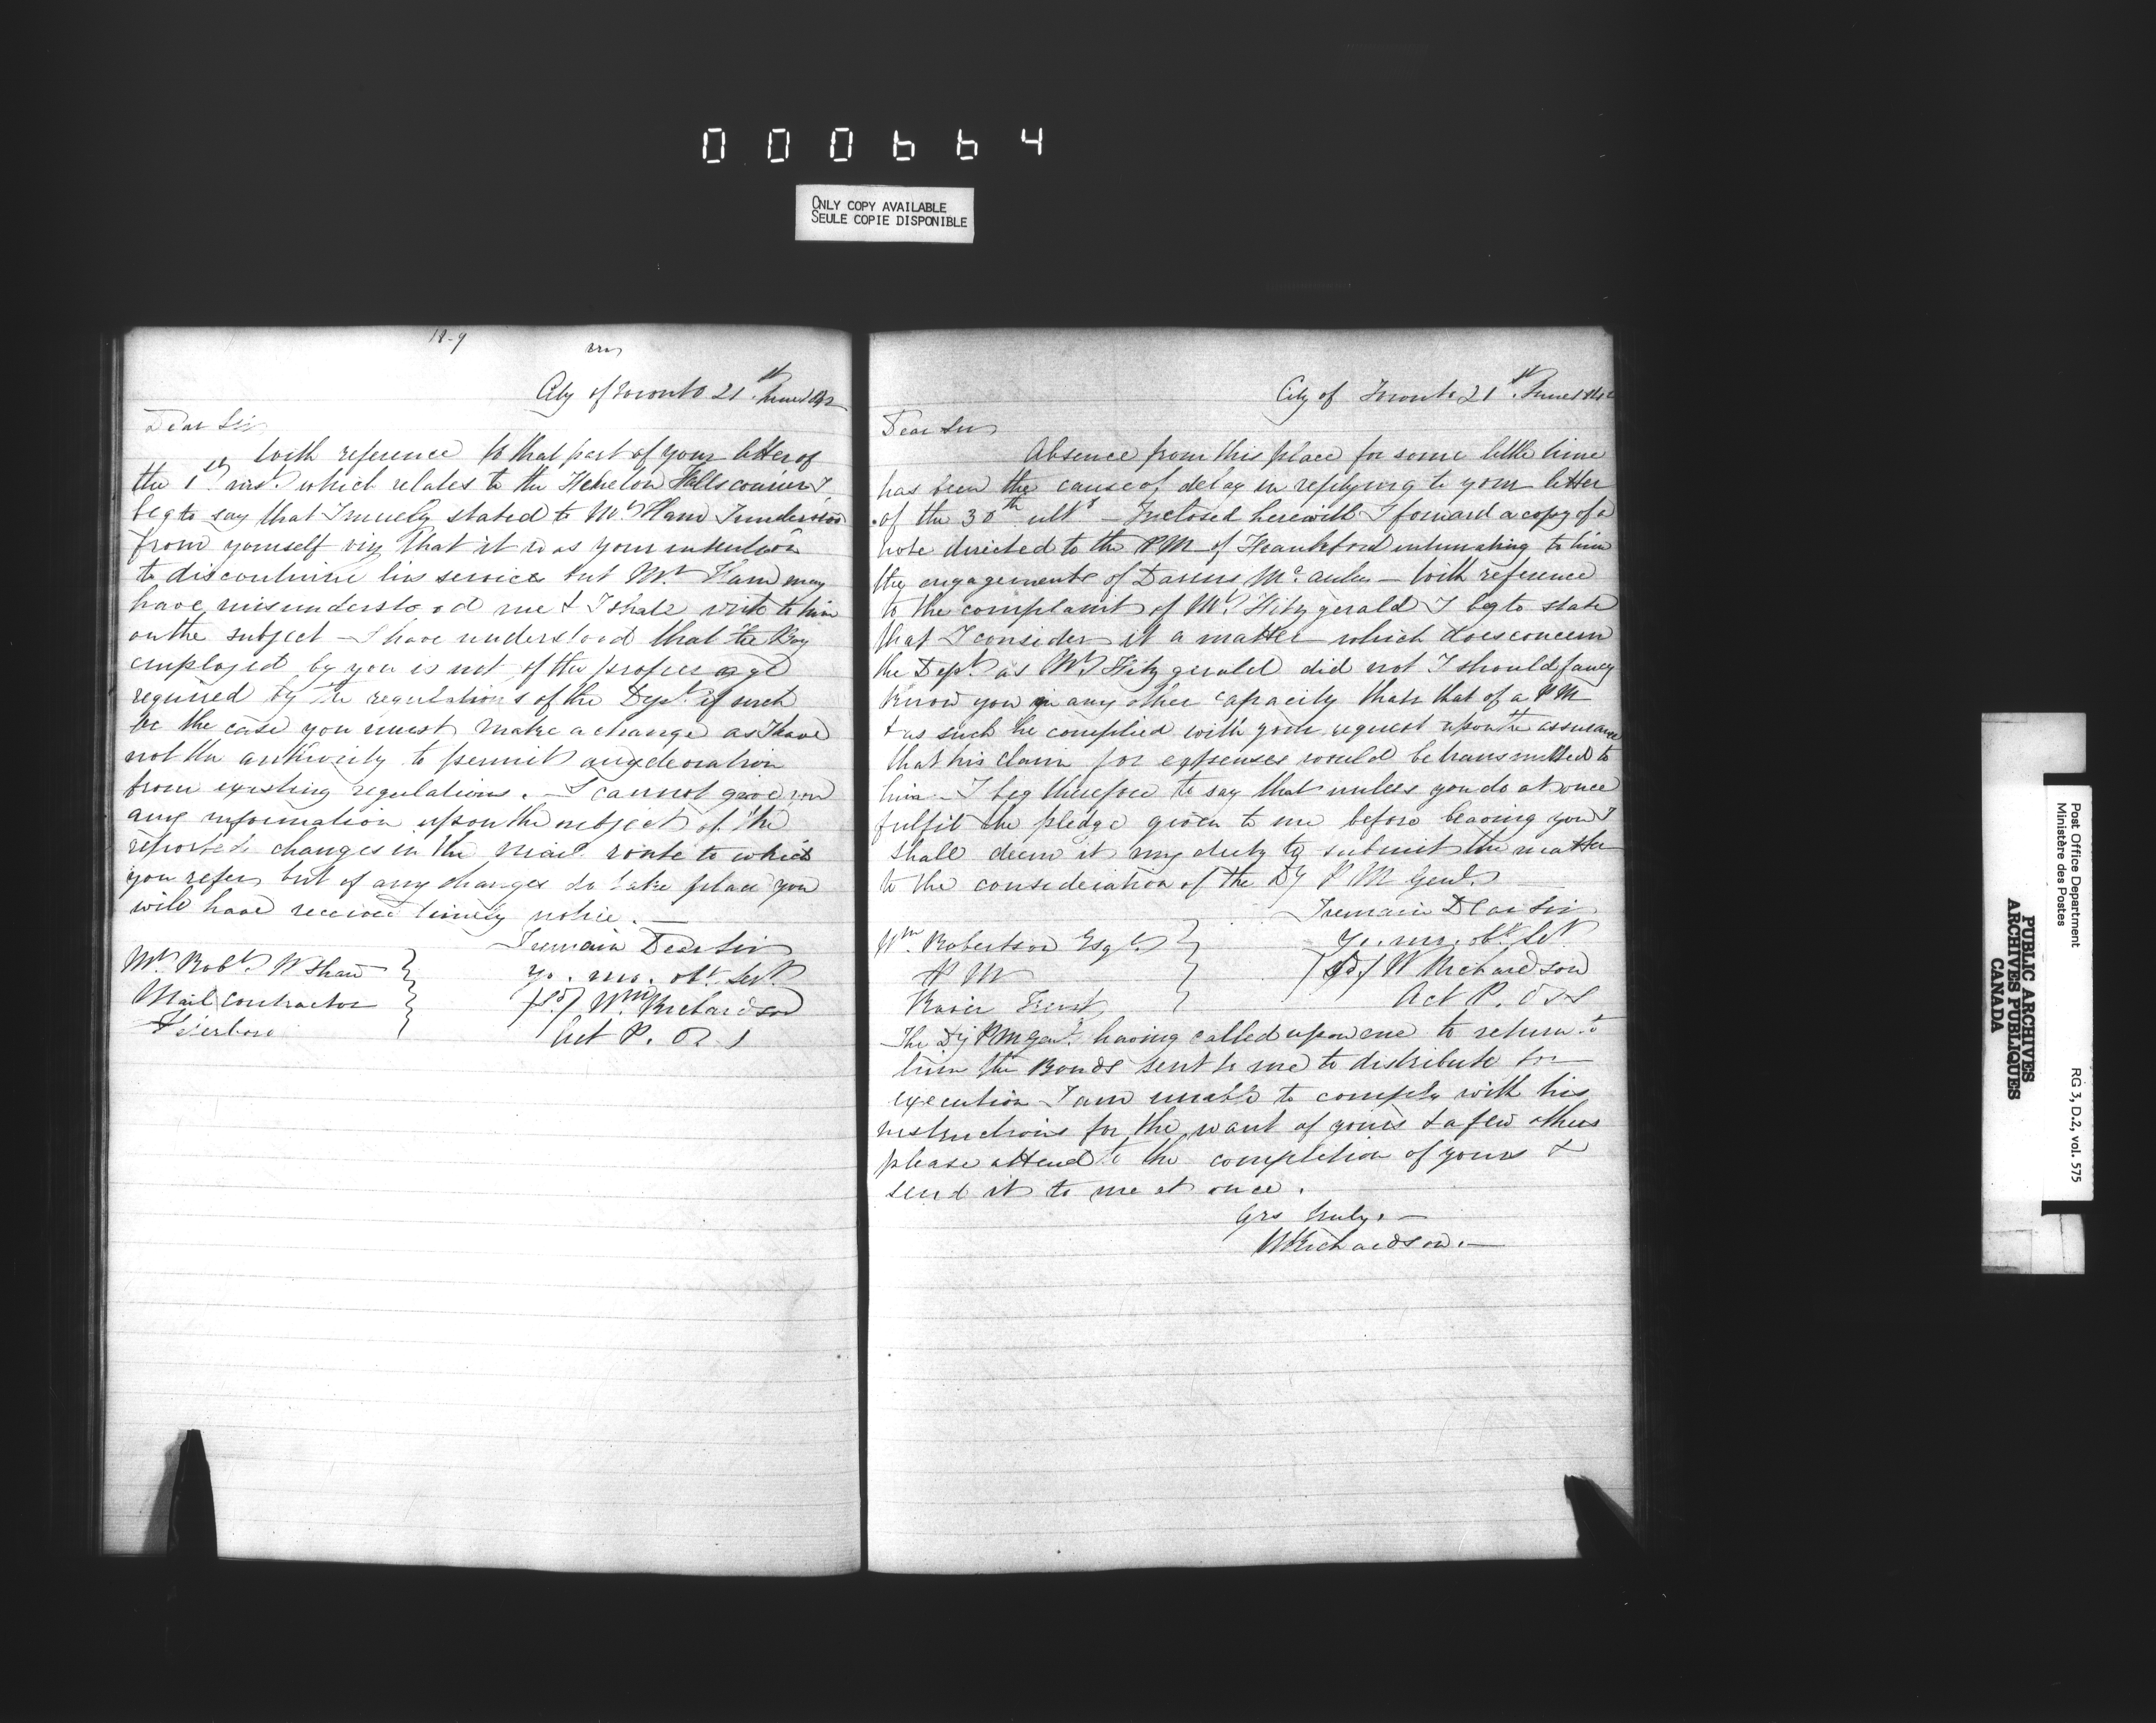 000664
ONLY COPY AVAILABLE
SEULE COPIE DISPONIBLE
City of Toronto 21st June 1842
Dear Sir
With reference to that part of your letter of
the 1st inst. which relates to the Fenelon Falls courier I
beg to say that I merely stated to Mr Ham I understood
from yourself viz that it was your intention
to discontinue his services but Mr Ham may
have misunderstood me & I shall write to him
on the subject — I have understood that the Boy
employed by you is not of the proper age
required by the regulations of the Dept. if such
be the case you must make a change as I have
not the authority to permit any deviation
from existing regulations. — I cannot give you
any information upon the subject of the
reported changes in the mail route to which
you refer, but if any changes do take place you
will have received timely notice. —
I remain Dear Sir
Yr. mo. obt. Sevt.
(sd) Wm Richardson
Act P. O. S
Mr Robt. W Shaw
Mail contractor
Peterboro
City of Toronto 21st June 1842
Dear Sir
Absence from this place for some little time
has been the cause of delay in replying to your letter
of the 30th ulto — Inclosed herewith I forward a copy of a
note directed to the PM of Frankford intimating to him
the engagements of Darius McAuley — With reference
to the complaint of Mr Fitzgerald I beg to state
that I consider it a matter which does concern
the Dept as Mr Fitzgerald did not I should fancy
know you in any other capacity than that of a PM
& as such he complied with your request upon the assurance
that his claim for expenses would be transmitted to
him — I beg therefore to say that unless you do at once
fulfil the pledge given to me before leaving you I
shall deem it my duty to submit the matter
to the consideration of the Dy P M Genl. —
I remain Dear Sir
Yr. mo. obt. Set.
(sd) W Richardson
Act P. O S
Wm Robertson Esqr.
P M
River Trent
The Dy PM Genl. having called upon me to return to
him the Bonds sent to me to distribute for
execution I am unable to comply with his
instructions for the want of yours & a few others
please attend to the completion of yours &
send it to me at once.
Yrs truly. —
W Richardson. —
Post Office Department
Ministère des Postes
RG 3, D.2, vol. 575
PUBLIC ARCHIVES
ARCHIVES PUBLIQUES
CANADA